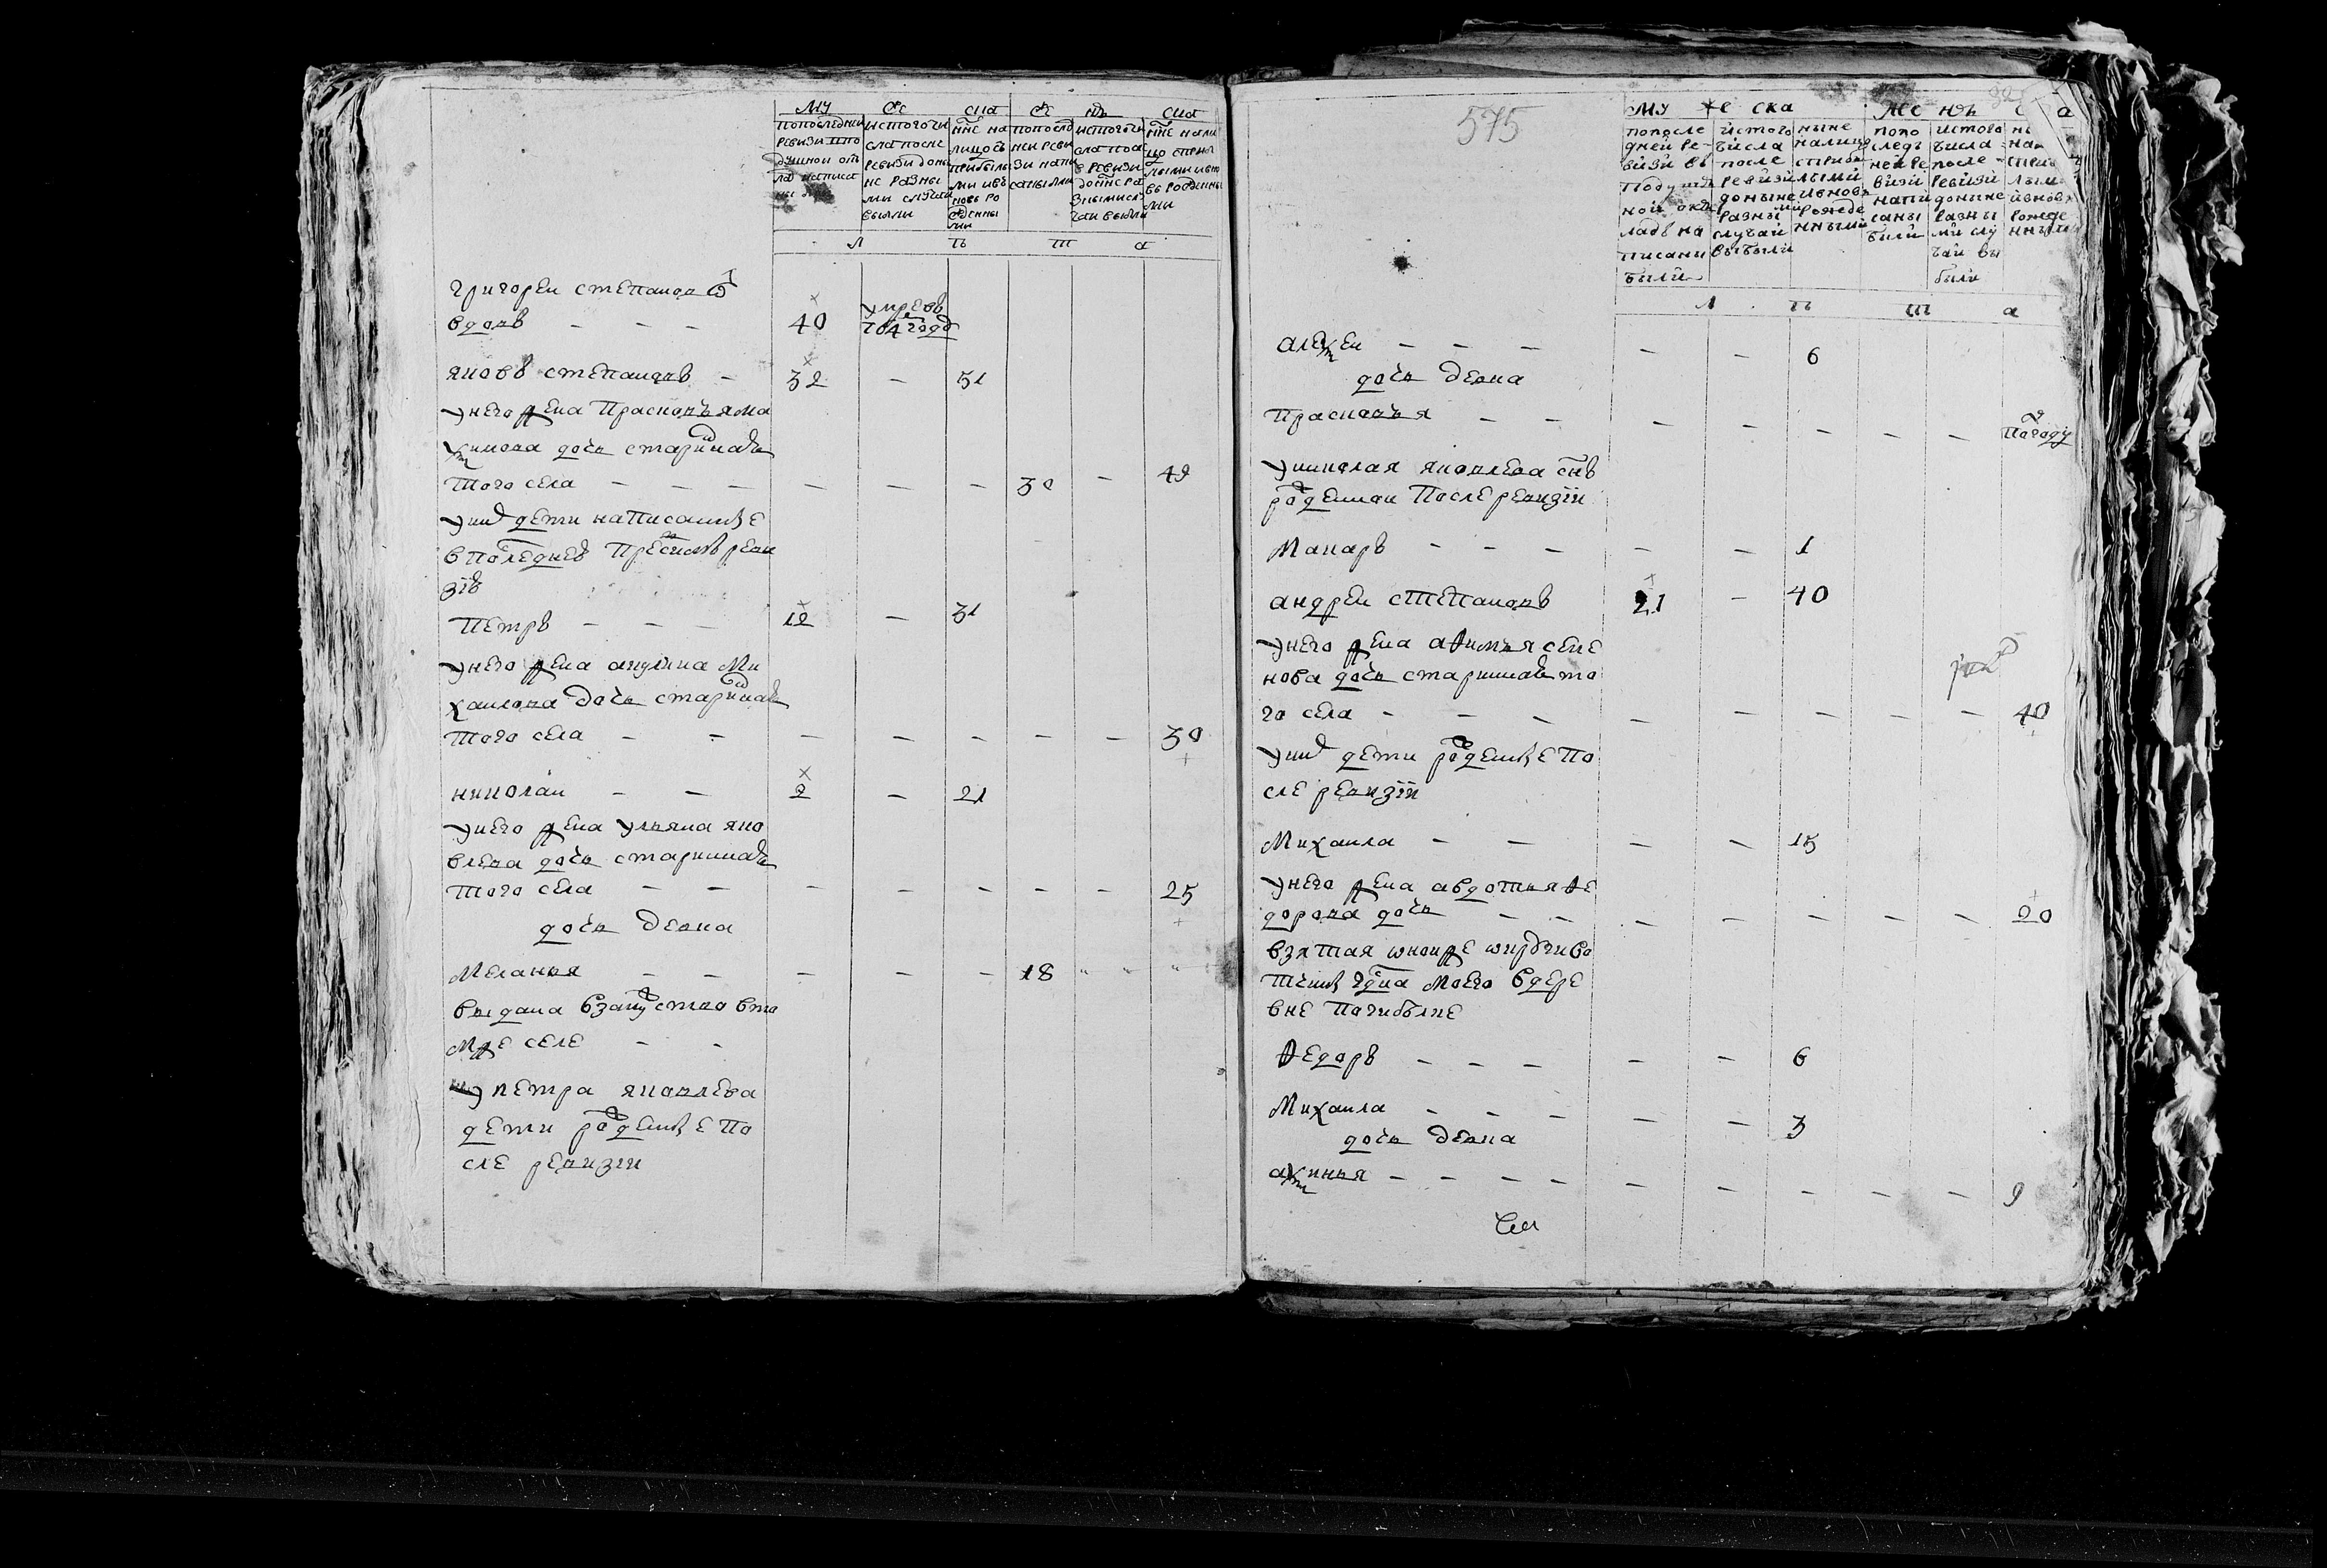 му же ска же нъ ска
попоследнеи ревизи впо душнои окъ ладъ написа ны
истогочи сла после ревизи доны не разны ми случаи выбыли
нне на лицо съ прибылы ми ивъ новь ро жденны ми
попослѣд неи реви зи напи саны были
истогочи сла после ревизи до нне ра зными слу чаи выбыли
нне нали цо сприб лыми ивно вь рожденны ми
л ъ т а
григореи степановъ
вдовъ — — — 40 умревъ
764 годѣ
яковъ степановъ — 32 — 51
унего жена прасковья ма
ксимова дочь стариннаѧ
того села — — — — — — 30 — 49
уних дети написанные
впоследнеѣ пред сим ревизиѣ
зіѣ
петръ — — — 12 — 31
унего жена акулина ми
хаилова дочь стариннаѧ
того села — — — — — — — 30
николаи — — 2 — 21
унего жена ульяна яко
влева дочь стариннаѧ
того села — — — — — — — 25
дочь девка
меланья — — — — — 18 " " "
выдана взамужство вто
мже селе — —
у петра яковлева
дети рожденные по
сле ревизіи
575
му же ска же нъ с а
попосле дней ре визи въ подуш ной окъ ладъ на писаны были
истого числа после ревизи доныне разными случаи выбыли
ныне налицо сприбы лыми ивновь рожде нными
попо следъ ней ре визи напи саны были
истого числа после ревизи доныне разны ми слу чаи вы были
л ъ т а
алексеи — — — — — 6
дочь девка
прасковья — — — — — — — погоду
униколая яковлева снъ
рожденнои после ревизіи
макаръ — — — — — 1
андреи степановъ 21 — 40
унего жена афимья семе
нова дочь стариннаѧ то
го села — — — — — — — — 40
уних дети рожденные по
сле ревизіи
михаила — — — — 15
унего жена авдотья фе
дорова дочь — — — — — — — 20
взятая
вне
федоръ — — — — — 6
михаила — — — — — 3
дочь девка
аксинья — — — — — — — — — 9